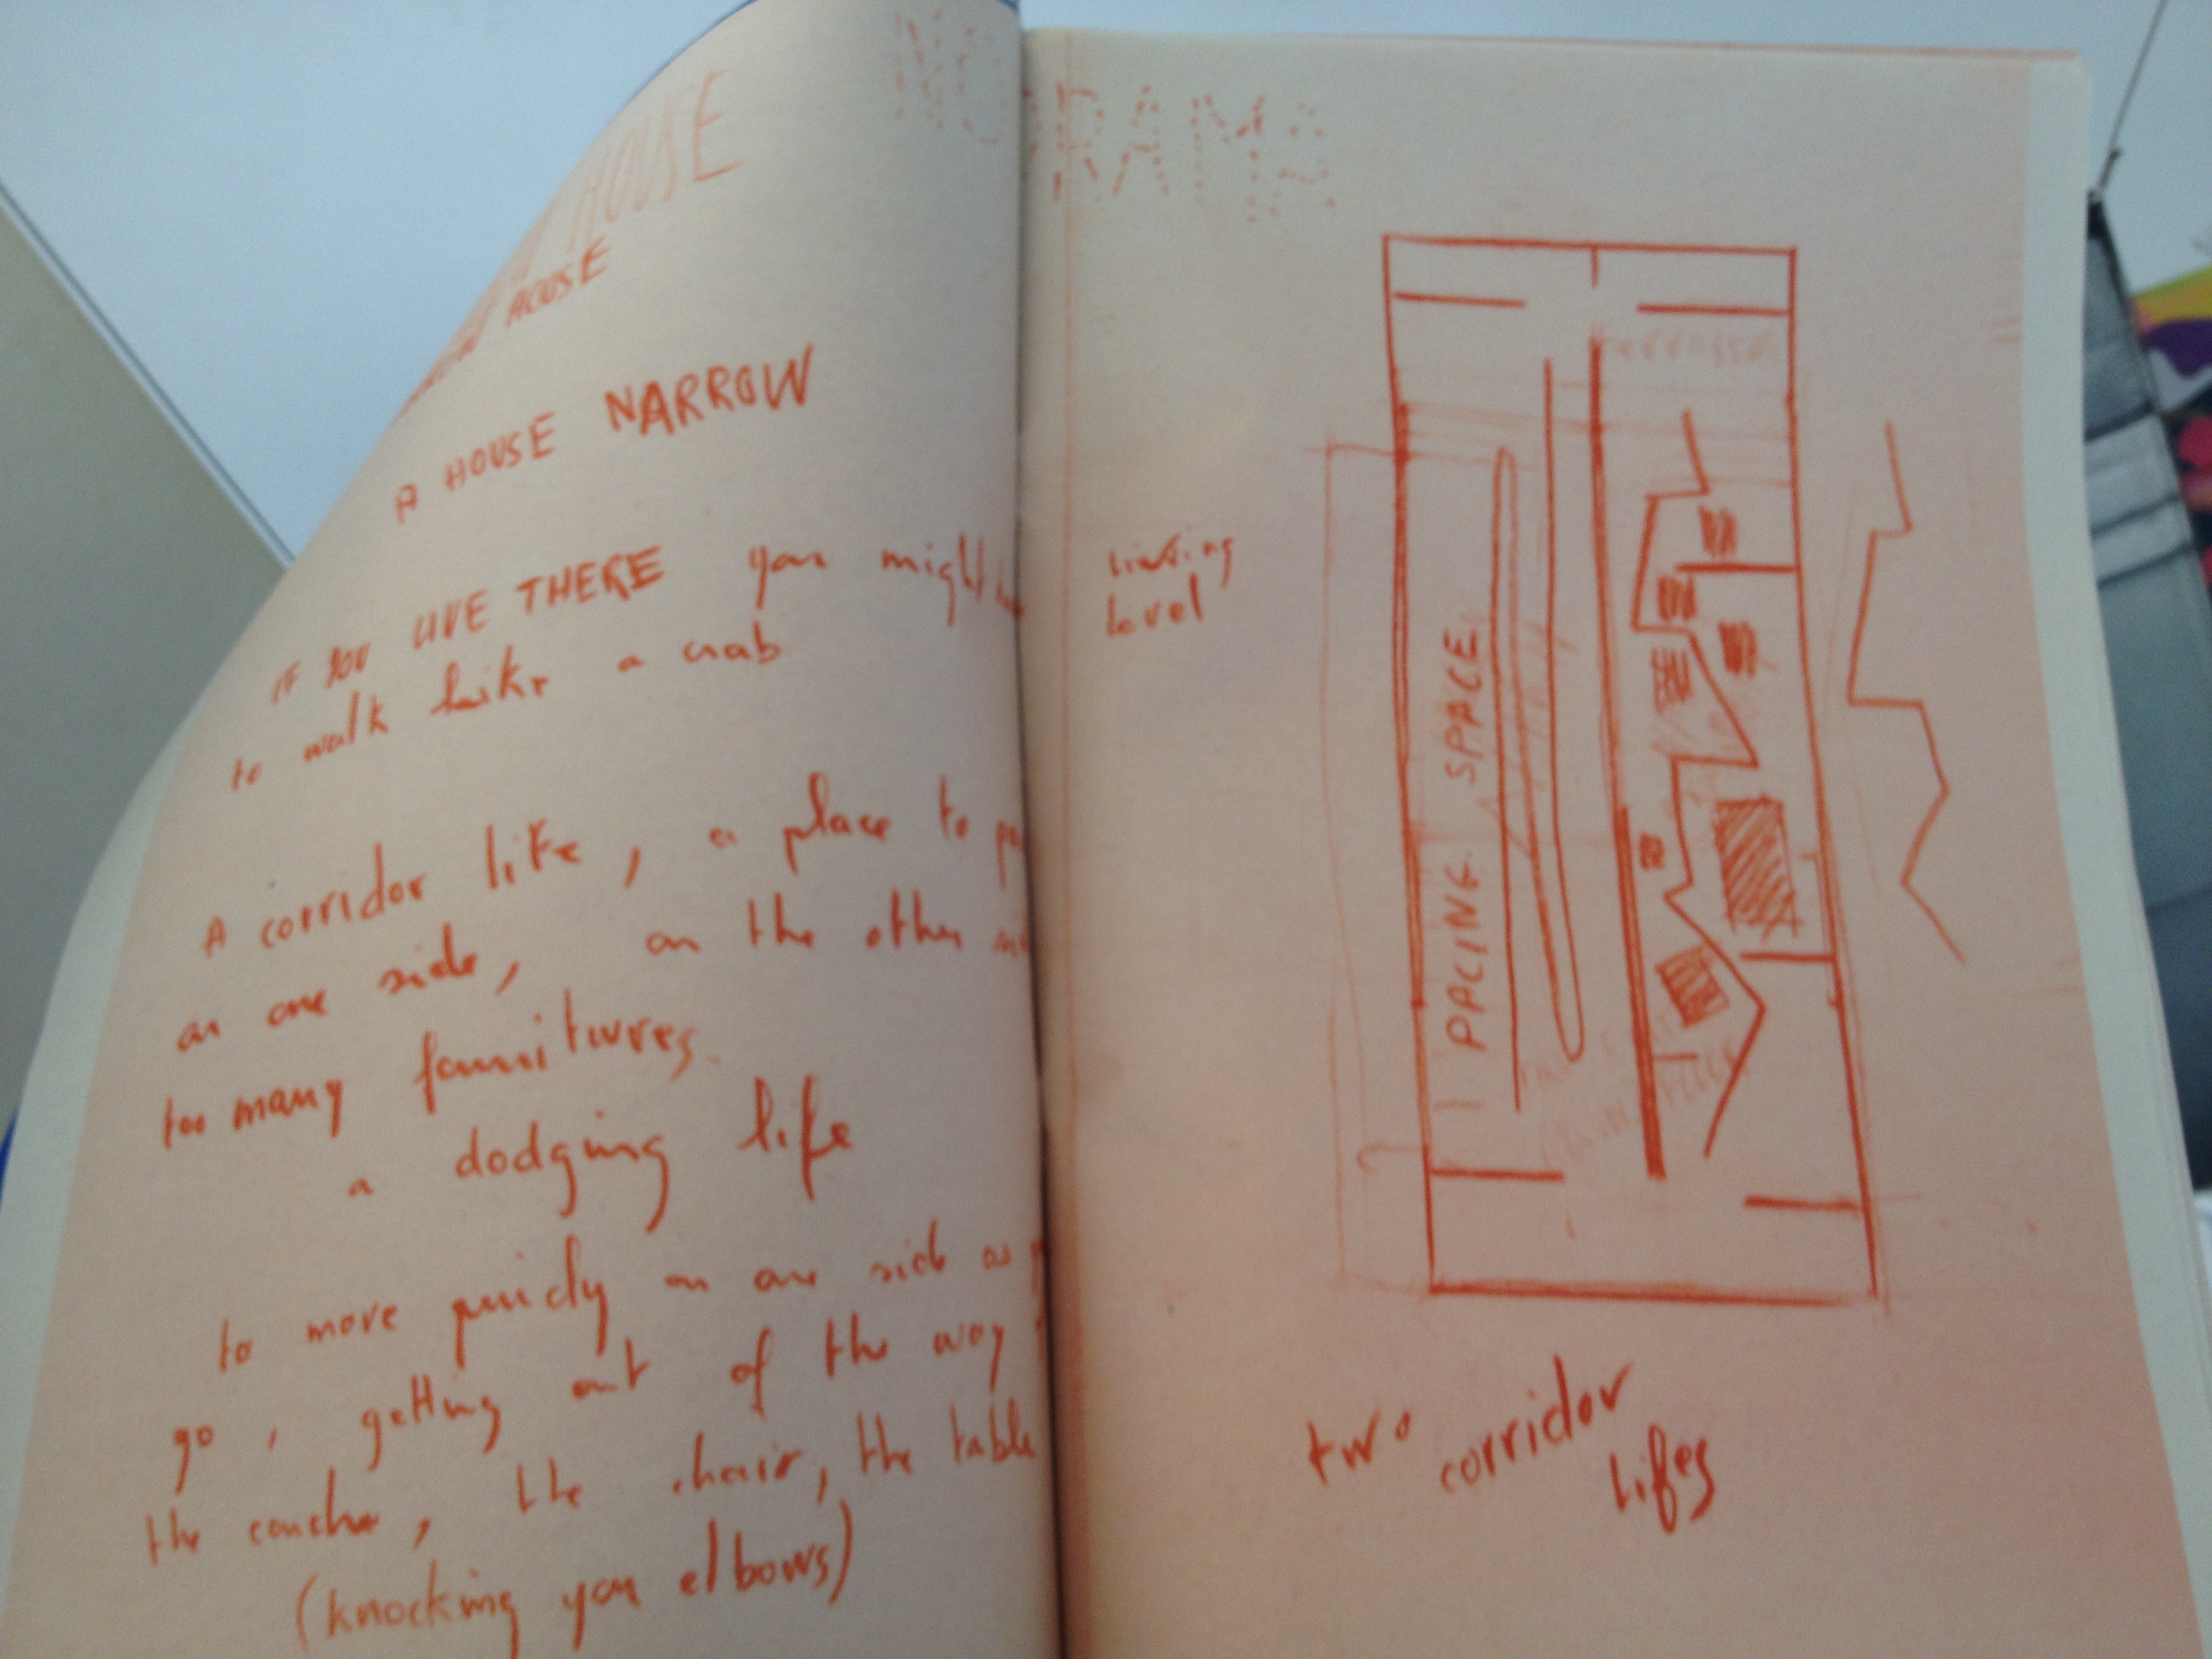 HOUSE
HOUSE
A HOUSE NARROW
IF YOU LIVE THERE you might
to walk like a crab
A corridor like, a place to
on one side, on the other
too many fournitures.
a dodging life
to move quicly on one side as
go, getting out of the way
the couche, the chair, the table
(knocking you elbows)
ORAMA
living
level
PACING SPACE
two corridor
lifes